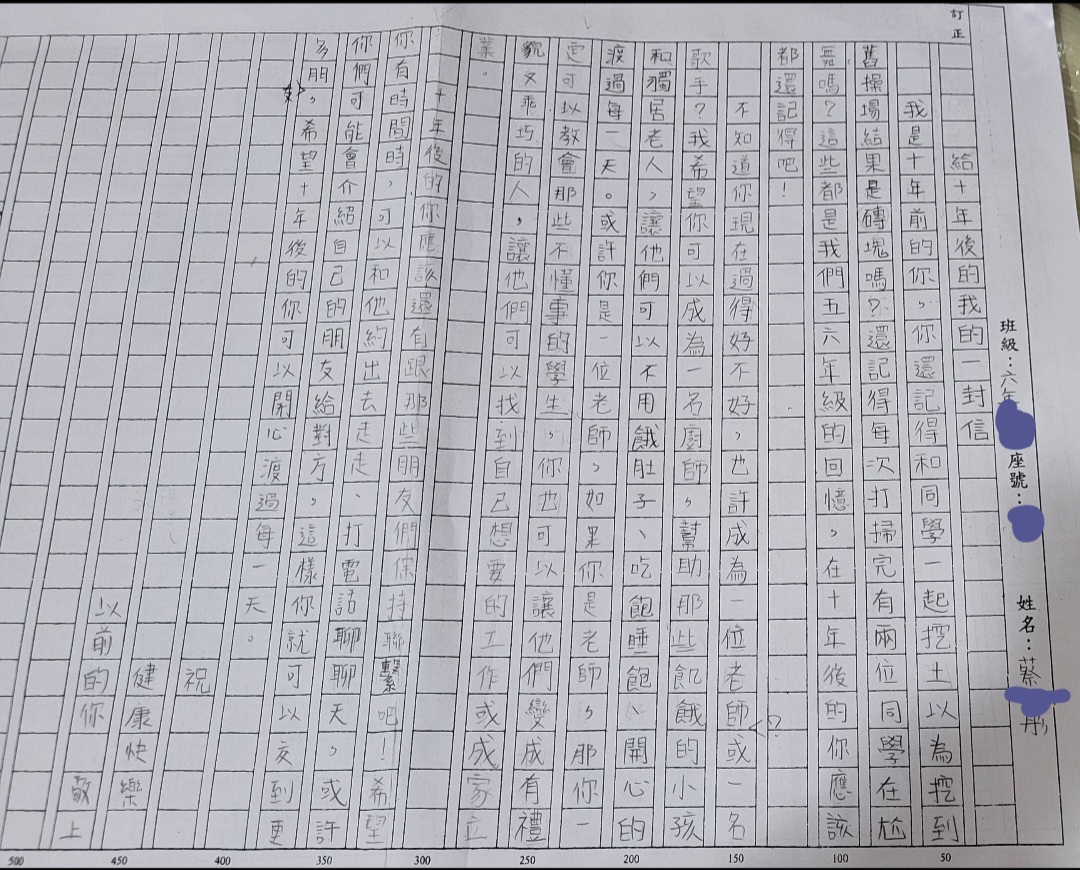 訂正
班級：六年 座號： 姓名：蔡
給十年後的我的一封信
我是十年前的你，你還記得和同學一起挖土以為挖到
舊操場結果是磚塊嗎？還記得每次打掃完有兩位同學在尬
舞嗎？這些都是我們五六年級的回憶，在十年後的你應該
都還記得吧！
不知道你現在過得好不好，也許成為一位老師或一名
歌手？我希望你可以成為一名廚師，幫助那些飢餓的小孩
和獨居老人，讓他們可以不用餓肚子、吃飽睡飽、開心的
渡過每一天。或許你是一位老師，如果你是老師，那你一
定可以教會那些不懂事的學生，你也可以讓他們變成有禮
貌又乖巧的人，讓他們可以找到自己想要的工作或成家立
業。
十年後的你應該還有跟那些朋友們保持聯繫吧！希望
你有時間時，可以和他約出去走走、打電話聊聊天，或許
你們可能會介紹自己的朋友給對方，這樣你就可以交到更
多朋友，希望十年後的你可以開心渡過每一天。
祝
健康快樂
以前的你 敬上
?
50
100
150
200
250
300
350
400
450
500